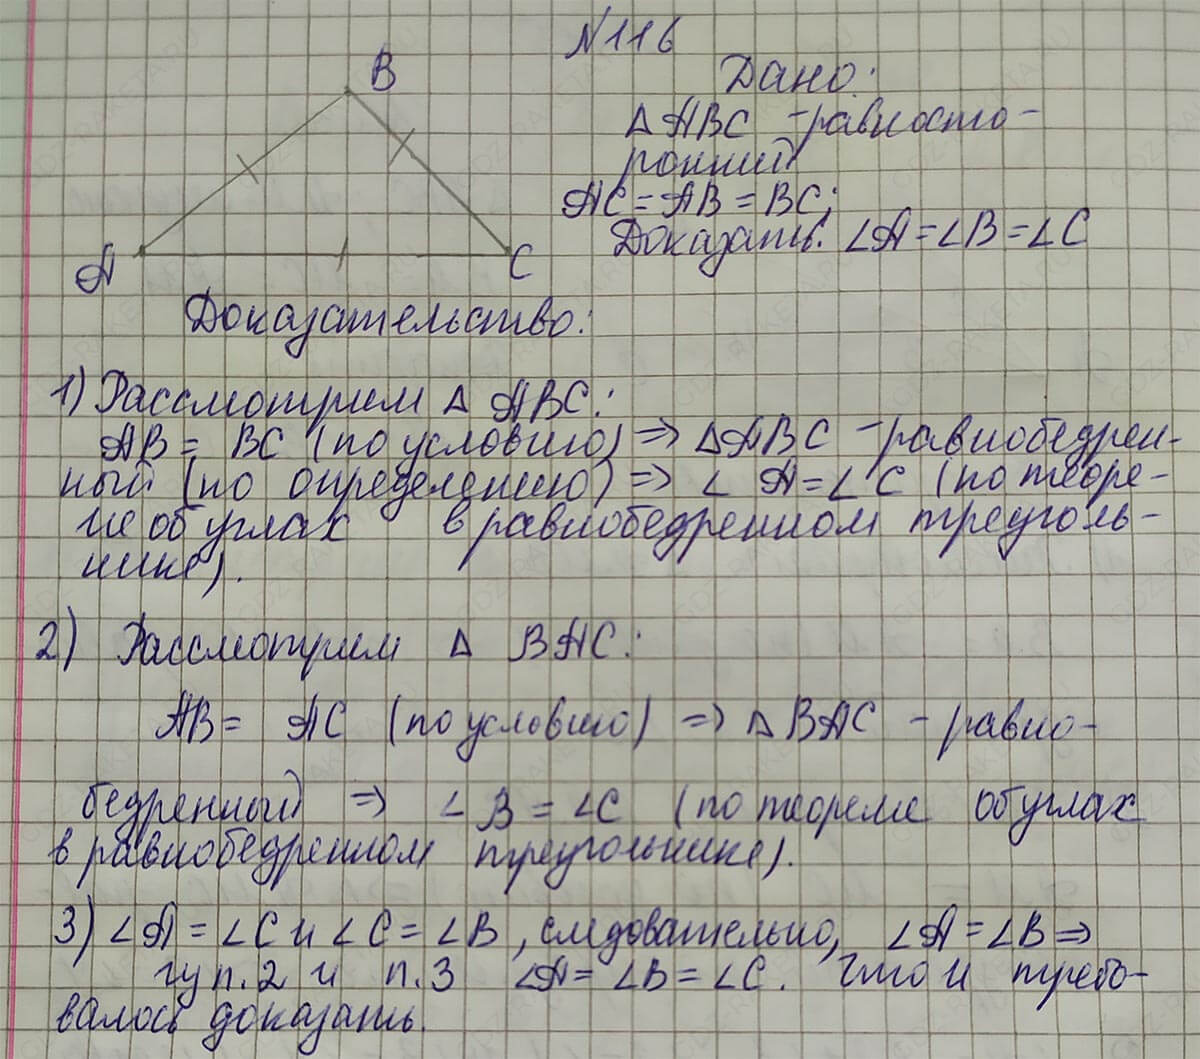 N116
B
Дано:
△ ABC - равносто-
ронний
AC = AB = BC;
Доказать: ∠A = ∠B = ∠C
A
C
Доказательство:
1) Рассмотрим △ ABC:
AB = BC (по условию) ⇒ △ABC - равнобедрен-
ный (по определению) ⇒ ∠ A = ∠ C (по теоре-
ме об углах в равнобедренном треуголь-
нике).
2) Рассмотрим △ BAC:
AB = AC (по условию) ⇒ △ BAC - равно-
бедренный ⇒ ∠ B = ∠C (по теореме об углах
в равнобедренном треугольнике).
3) ∠A = ∠C и ∠C = ∠B, следовательно, ∠A = ∠B ⇒
п.2 и п.3 ∠A = ∠B = ∠C. Что и требо-
валось доказать.